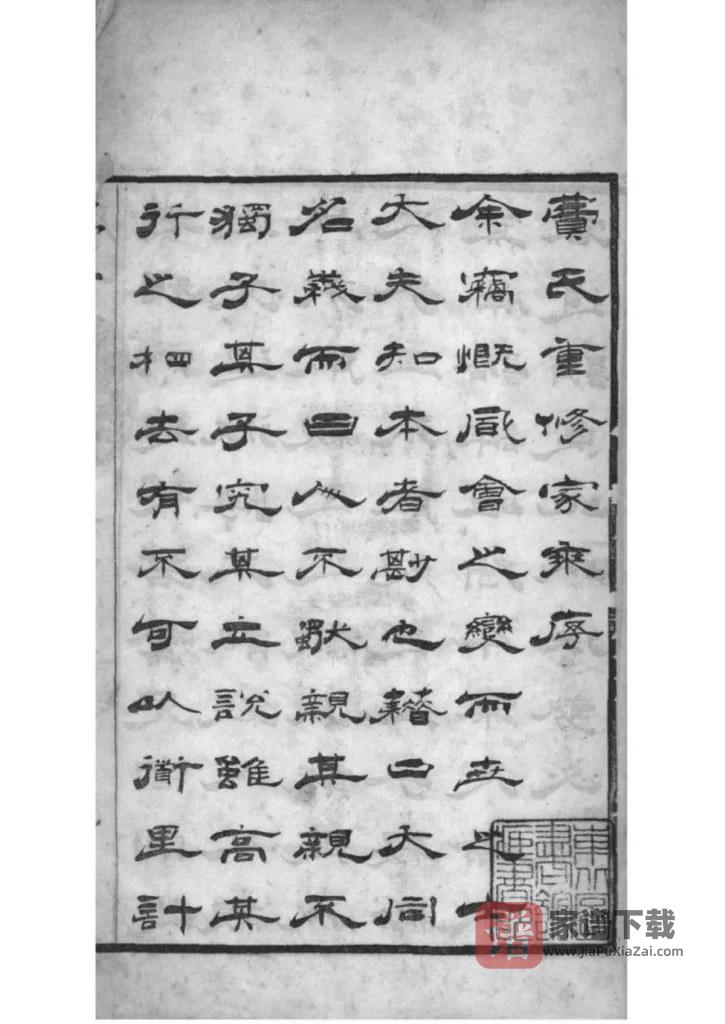 費氏重修家乘序
余竊慨風會之變而世之士
大夫知本者尠也藉口大同
名義而曰人不獨親其親不
獨子其子究其立說雖高其
行之相去有不可以衜里計
谱
家谱下载
www.JiaPuXiaZai.com